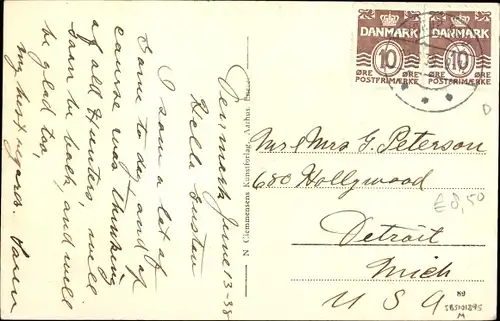 Denmark June 13-38
Hello Gustav
I saw a lot of
Sorne to day and of
cause was thinking
of all Hunters, will
soon be back and will
be glad too,
my best regards. Soren
N Clemmensens Kunstforlag. Aarhus.
DANMARK
10
ØRE
POSTFRIMÆRKE
DANMARK
10
ØRE
POSTFRIMÆRKE
D
Mr & Mrs G. Peterson
680 Hollywood
Detroit
Mich
U S A
£8,50
SBS101895
M